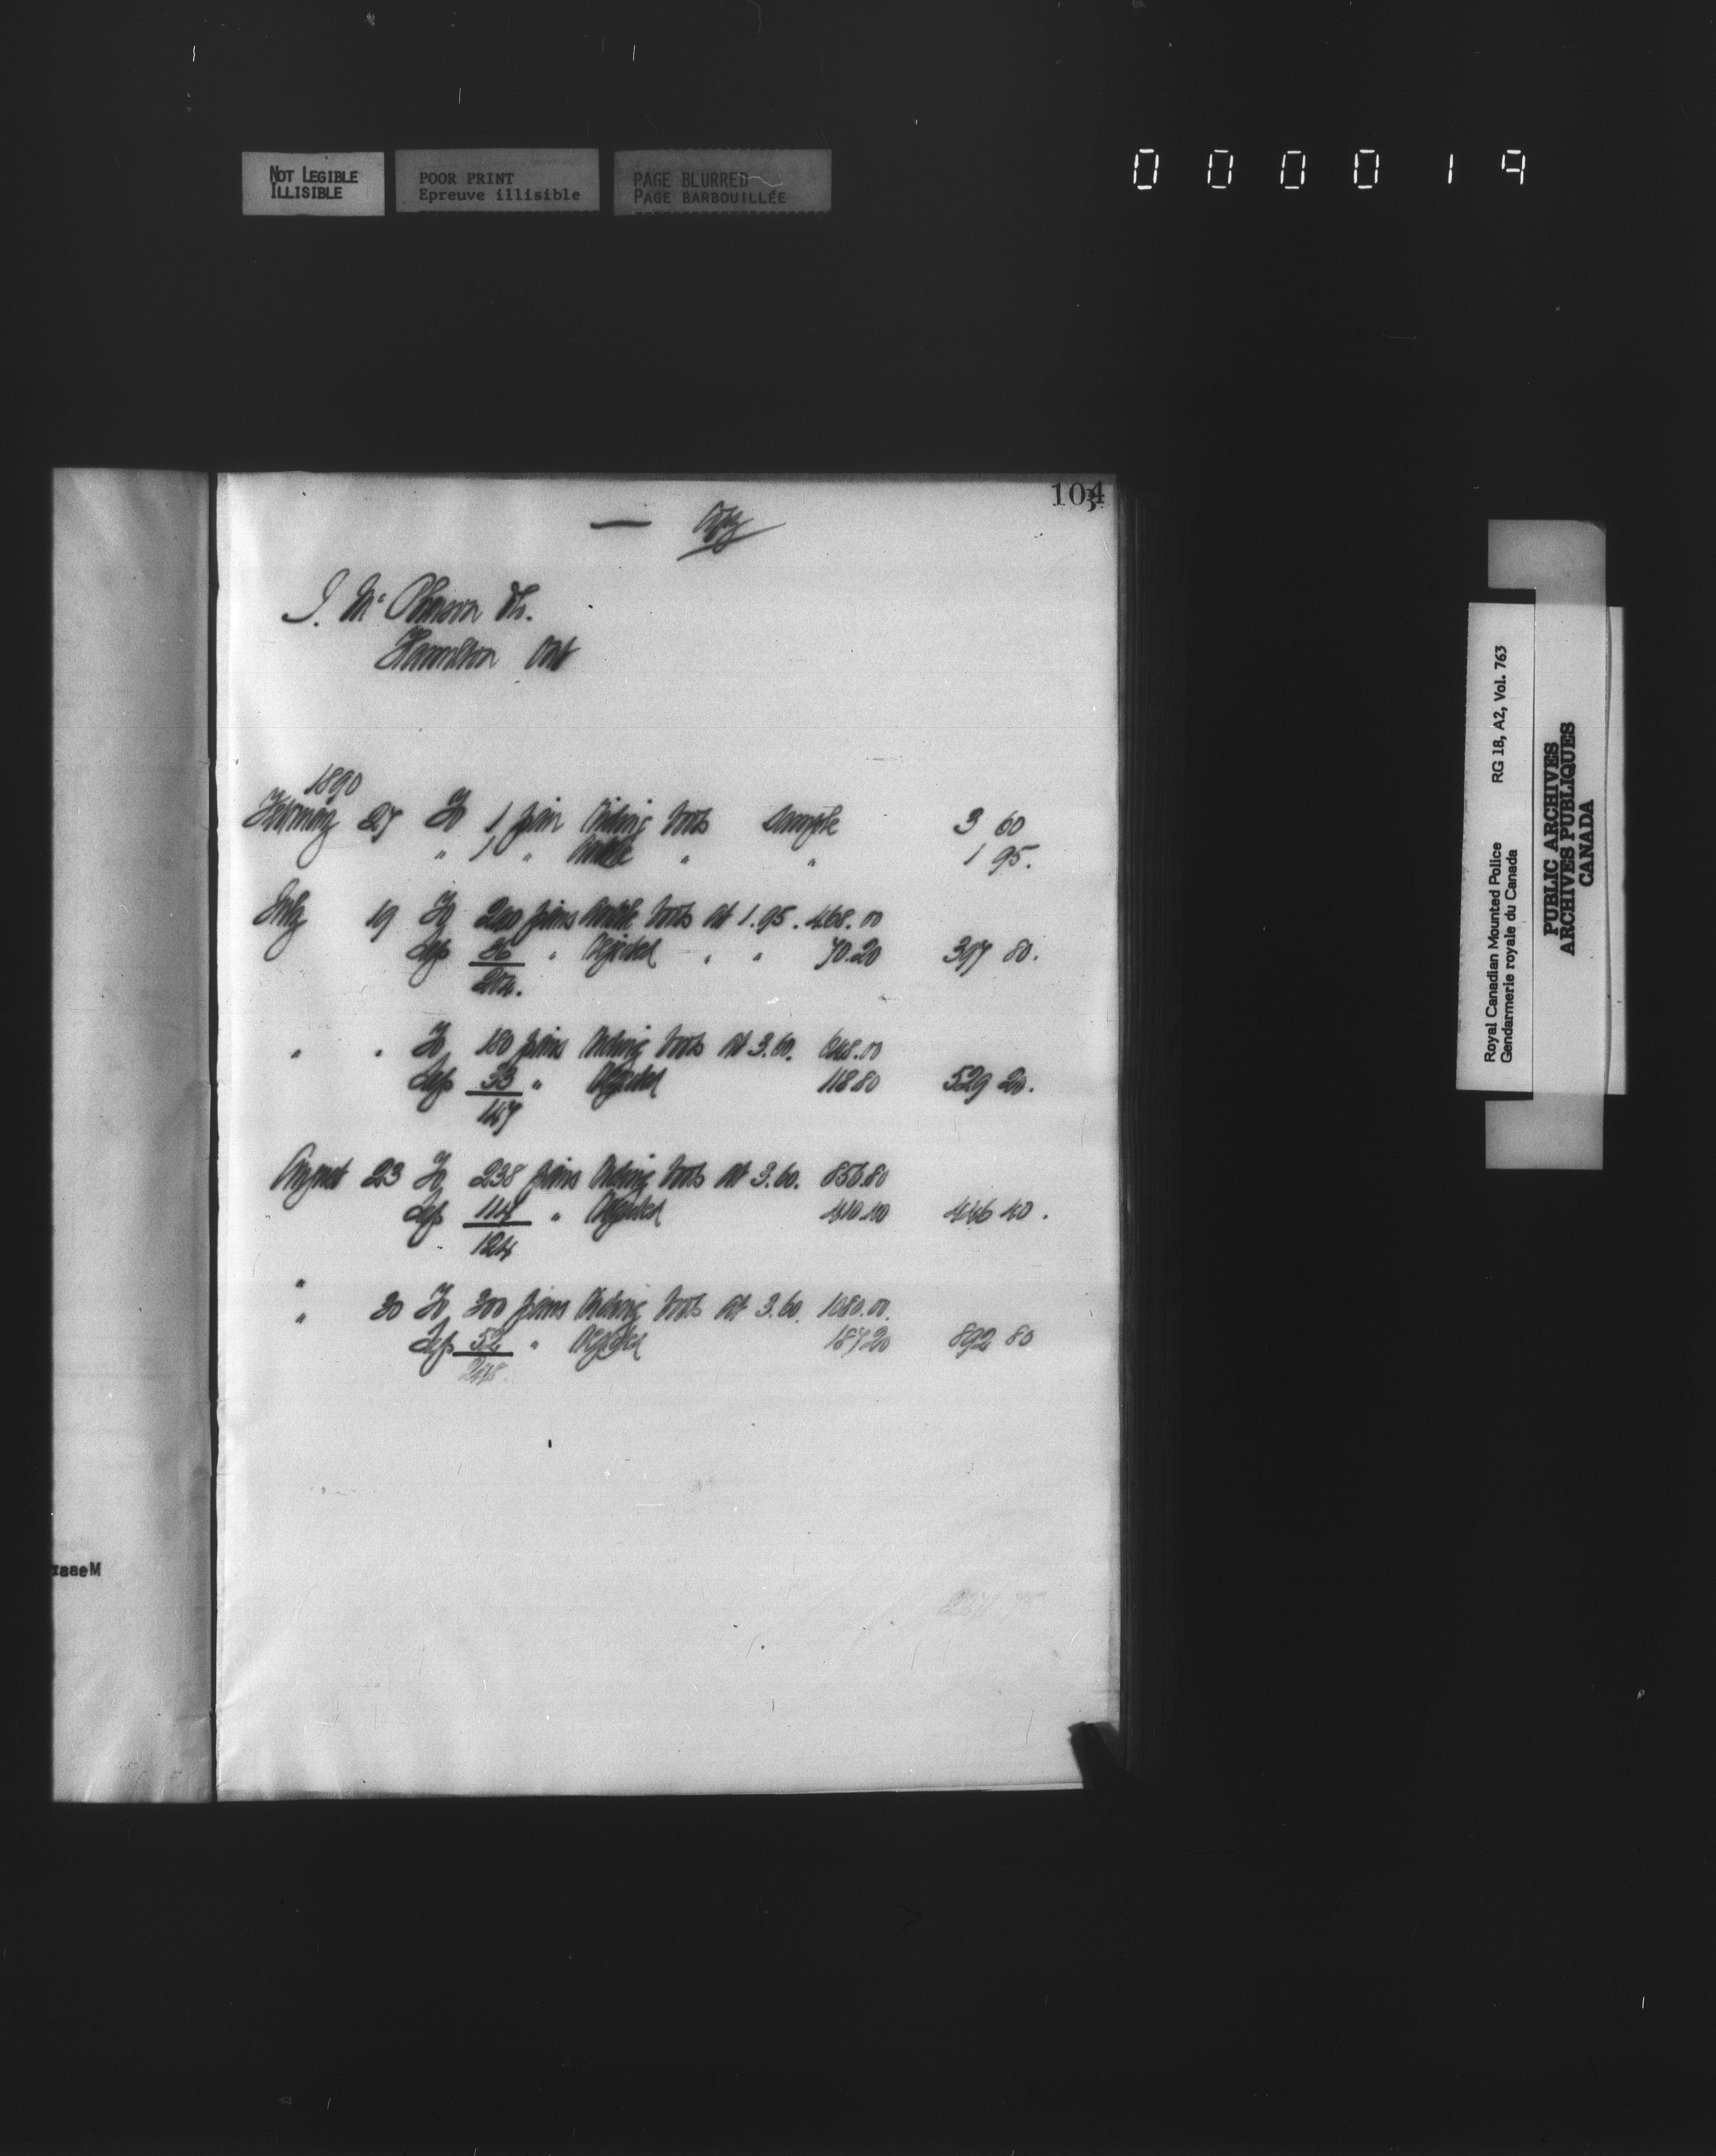 NOT LEGIBLE
ILLISIBLE
POOR PRINT
Epreuve illisible
PAGE BLURRED
PAGE BARBOUILLÉE
000019
104
Copy
Hamilton Ont
1890
February 27 To 1 pair Riding boots Sample 3 60
" 1 " Ankle " " 1 95.
July 19 To 240 pairs Ankle boots at 1.95. 468.00
Less 36 " Rejected " " 70.20 397 80.
204.
" " To 180 pairs Riding boots at 3.60. 648.00
Less 33 " Rejected 118 80 529 20.
147
August 23 To 238 pairs Riding boots at 3.60. 856.80
Less 114 " Rejected 410.40 446 40.
124
"
" 30 To 300 pairs Riding boots at 3.60. 1080.00.
Less 52 " Rejected 187 20 892 80
248.
Royal Canadian Mounted Police RG 18, A2, Vol. 763
Gendarmerie royale du Canada
PUBLIC ARCHIVES
ARCHIVES PUBLIQUES
CANADA